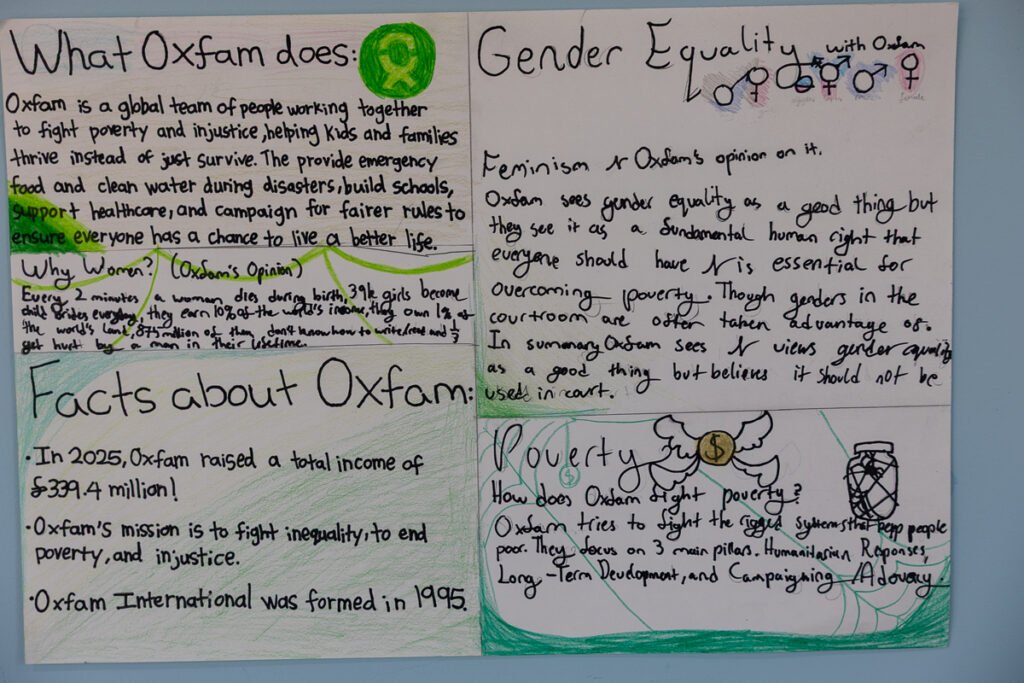 What Oxfam does:
Oxfam is a global team of people working together
to fight poverty and injustice, helping kids and families
thrive instead of just survive. The provide emergency
food and clean water during disasters, build schools,
support healthcare, and campaign for fairer rules to
ensure everyone has a chance to live a better life.
Why Women? (Oxfam's Opinion)
Every 2 minutes a woman dies during birth, 39k girls become
child brides everyday, they earn 10% of the world's income, they own 1% of
the world's land, 875 million of them don't know how to write/read and 1/3
get hurt by a man in their lifetime.
Facts about Oxfam:
· In 2025, Oxfam raised a total income of
£339.4 million!
· Oxfam's mission is to fight inequality, to end
poverty, and injustice.
· Oxfam International was formed in 1995.
Gender Equality with Oxfam
female
Feminism N Oxfam's opinion on it.
Oxfam sees gender equality as a good thing but
they see it as a fundamental human right that
everyone should have N is essential for
overcoming poverty. Though genders in the
courtroom are often taken advantage of.
In summary Oxfam sees N views gender equality
as a good thing but believes it should not be
used in court.
Poverty $
How does Oxfam fight poverty?
Oxfam tries to fight the rigged systems that keep people
poor. They focus on 3 main pillars. Humanitarian Reponses,
Long-Term Development, and Campaigning /Advoacy.